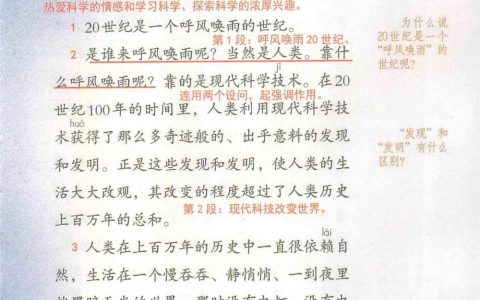 热爱科学的情感和学习科学、探索科学的浓厚兴趣。
1 20世纪是一个呼风唤雨的世纪。
第1段：呼风唤雨20世纪。
2 是谁来呼风唤雨呢？当然是人类。靠什
么呼风唤雨呢？靠的是现代科学技术。在20
jì
连用两个设问，起强调作用。
世纪100年的时间里，人类利用现代科学技
huò
术获得了那么多奇迹般的、出乎意料的发现
和发明。正是这些发现和发明，使人类的生
活大大改观，其改变的程度超过了人类历史
上百万年的总和。
第2段：现代科技改变世界。
lài
3 人类在上百万年的历史中一直很依赖自
然，生活在一个慢吞吞、静悄悄、一到夜里
为什么说
20世纪是一个
“呼风唤雨”的
世纪呢？
“发现”和
“发明”有什么
区别？